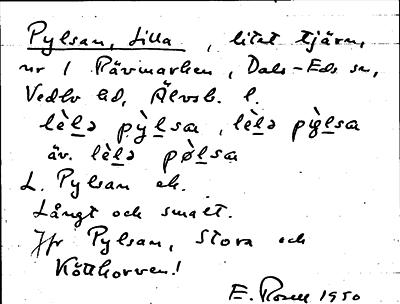 Pylsan, Lilla, litet tjärn,
nr 1 Rävmarken, Dals-Eds sn,
Vedbo hd, Älvsb. l.
lèlə pỳlsa, lèlə pylsa
äv. lèlə pø̀lsa
L. Pylsan ek.
Långt och smalt.
Jfr Pylsan, Stora och
Köttkorven!
E. Rosell 1950